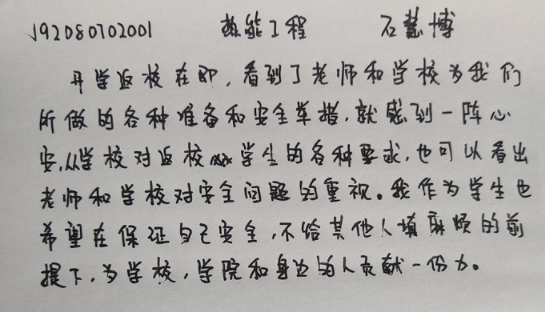 J92080702001 热能工程 石慧博
开学返校在即，看到了老师和学校为我们
所做的各种准备和安全举措，就感到一阵心
安，从学校对返校学生的各种要求，也可以看出
老师和学校对安全问题的重视。我作为学生也
希望在保证自己安全，不给其他人填麻烦的前
提下，为学校，学院和身边的人贡献一份力。